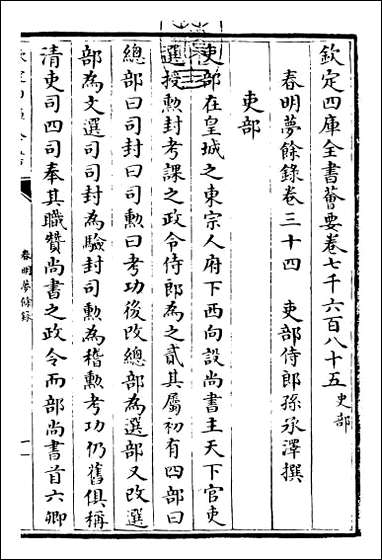 欽定四庫全書薈要卷七千六百八十五 史部
春明夢餘錄卷三十四 吏部侍郎孫承澤撰
吏部
吏部在皇城之東宗人府下西向設尚書主天下官吏
選授勲封考課之政令侍郎為之貳其屬初有四部曰
總部曰司封曰司勲曰考功後改總部為選部又改選
部為文選司司封為驗封司勲為稽勲考功仍舊俱稱
清吏司四司奉其職贊尚書之政令而部尚書首六卿
春明夢餘錄
一